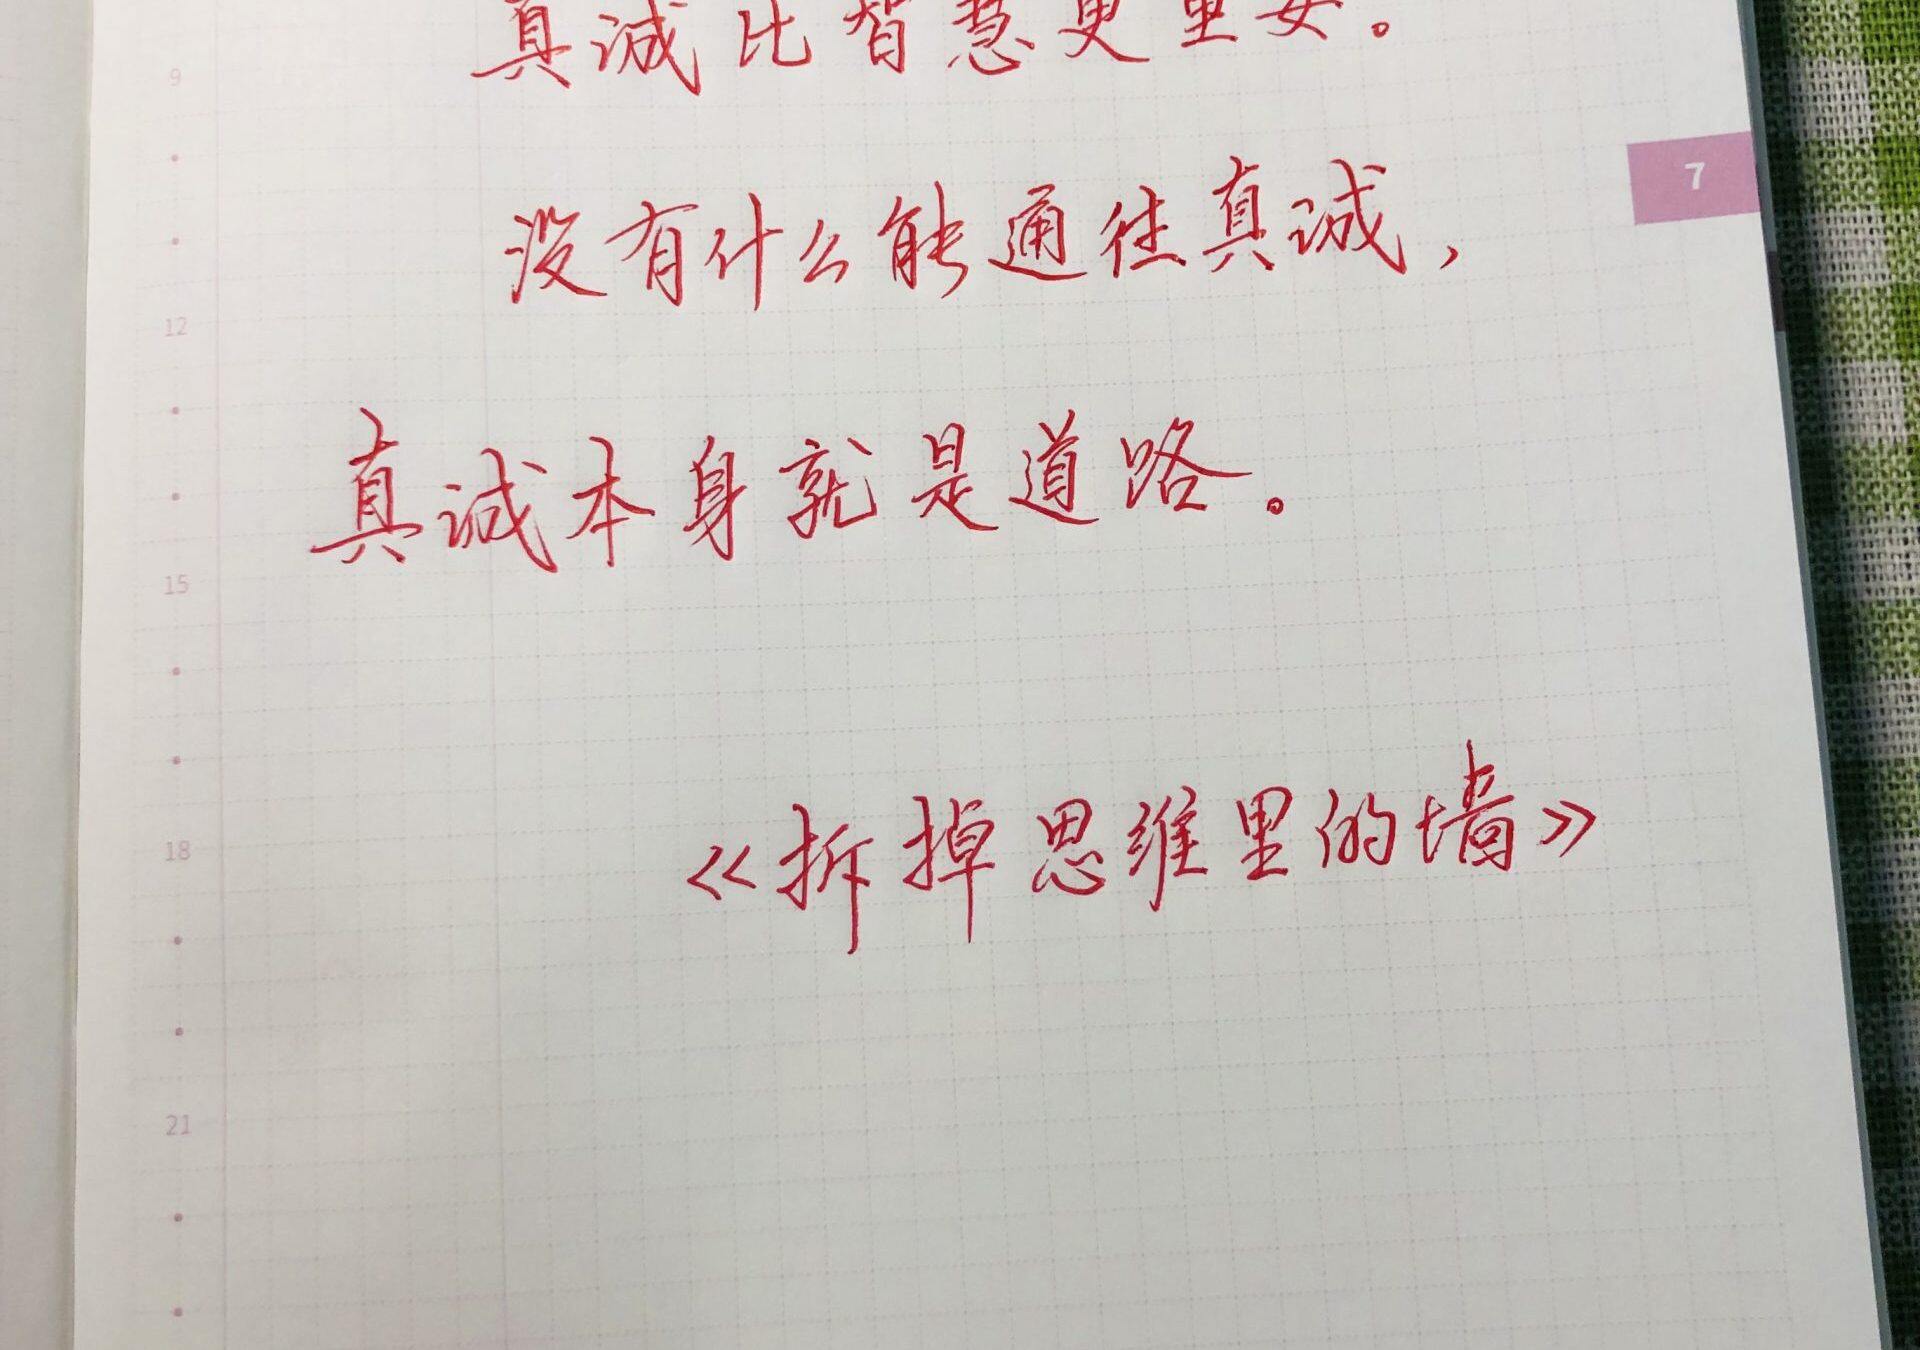 真诚比智慧更重要。
9
7
没有什么能通往真诚，
12
真诚本身就是道路。
15
《拆掉思维里的墙》
18
21